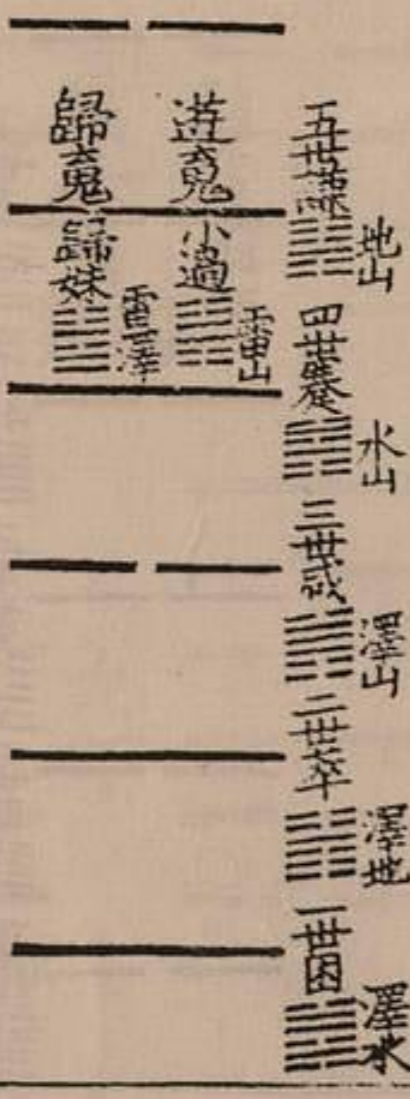 五世謙 地山
四世蹇 水山
三世咸 澤山
二世萃 澤地
一世困 澤水
遊䰟 小過 雷山
歸䰟 歸妹 雷澤